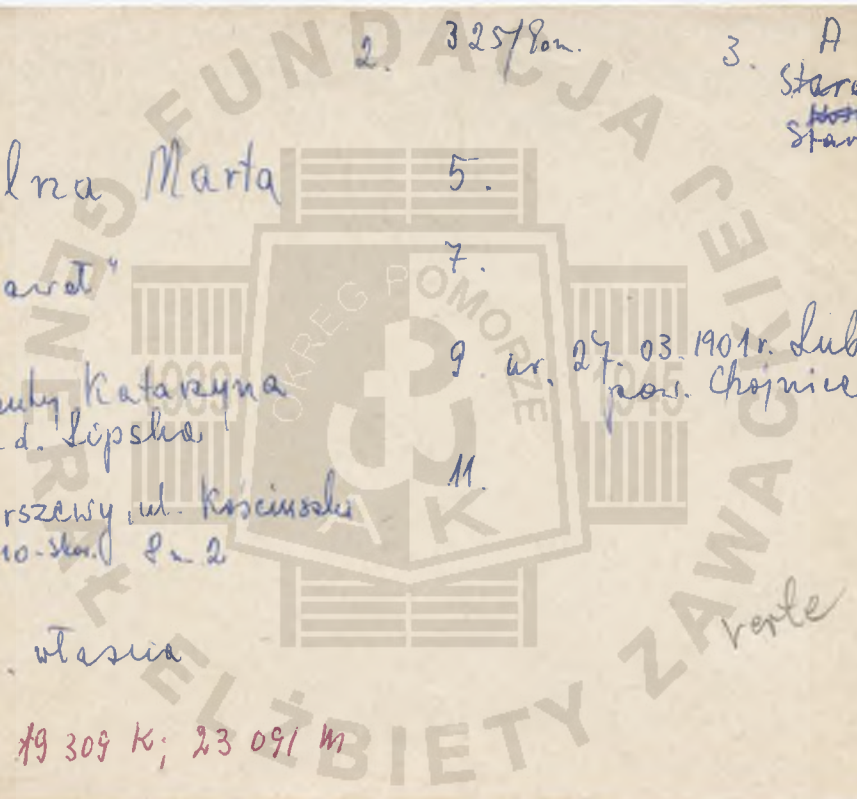 2. 325/Pom. 3. A
Star
Star
lna Marta 5.
awat" 7.
Katarzyna 9. ur. 27. 03. 1901 r. Lub
pow. Chojnice
d. Lipska
rszewy, ul. Kościuszki 11.
8 m 2
verte
własna
19 309 K; 23 091 M
FUNDACJA GENERAŁ ELŻBIETY ZAWACKIEJ
OKRĘG POMORZE
1939 1945
AK